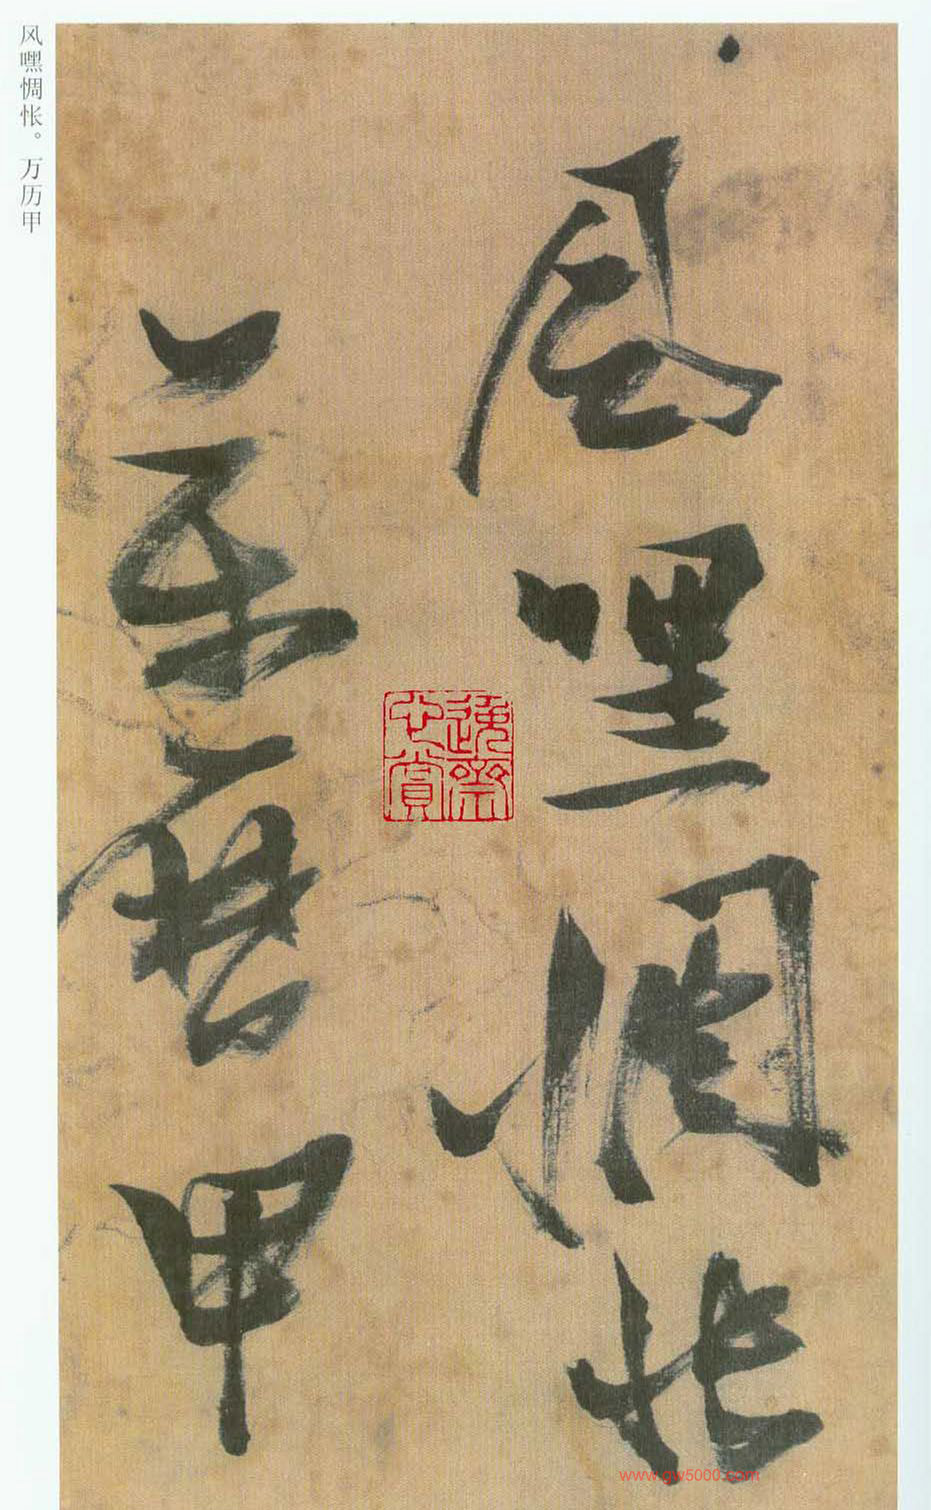 风嘿惆怅。万历甲
風嘿惆悵
萬曆甲
www.gw5000.com